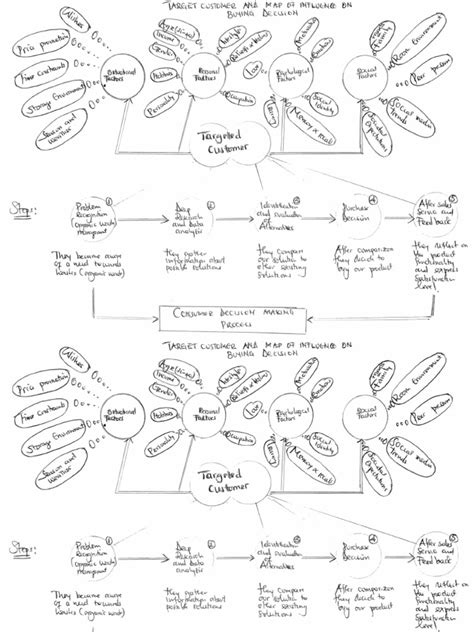 TARGET CUSTOMER AND MAP OF INFLUENCE ON
BUYING DECISION
Price promotion
Time constraints
Storage Environment
Season and
Weather
Situational
Factors
Income
Gender
Hobbies
Personality
Personal
Factors
Lifestyle
Occupation
Psychological
Factors
Social
Identity
Memory
Social
Factors
Family
Peer pressure
Social media
Trends
Societal
Expectations
Targeted
Customer
Steps:
①
Problem
Recognition
(organic waste)
②
Deep
Research
and Data
analytic
③
Identification
and evaluation
of Alternatives
④
Purchase
Decision
⑤
After sales
Service and
Feed back
They became aware
of a need towards
(organic waste)
they gather
information about
possible solutions
They compare
our solution to
other existing
solutions
After comparison
they decide to
buy our product
they reflect on
the product
functionality
and express
satisfaction
level.
CONSUMER DECISION MAKING
PROCESS
TARGET CUSTOMER AND MAP OF INFLUENCE ON
BUYING DECISION
Price promotion
Time constraints
Storage Environment
Season and
Weather
Situational
Factors
Income
Gender
Hobbies
Personality
Personal
Factors
Lifestyle
Occupation
Psychological
Factors
Social
Identity
Memory
Social
Factors
Family
Peer pressure
Social media
Trends
Societal
Expectations
Targeted
Customer
Steps:
①
Problem
Recognition
(organic waste)
②
Deep
Research
and Data
analytic
③
Identification
and evaluation
of Alternatives
④
Purchase
Decision
⑤
After sales
Service and
Feed back
They became aware
of a need towards
(organic waste)
they gather
information about
possible solutions
They compare
our solution to
other existing
solutions
After comparison
they decide to
buy our product
they reflect on
the product
functionality
and express
satisfaction
level.